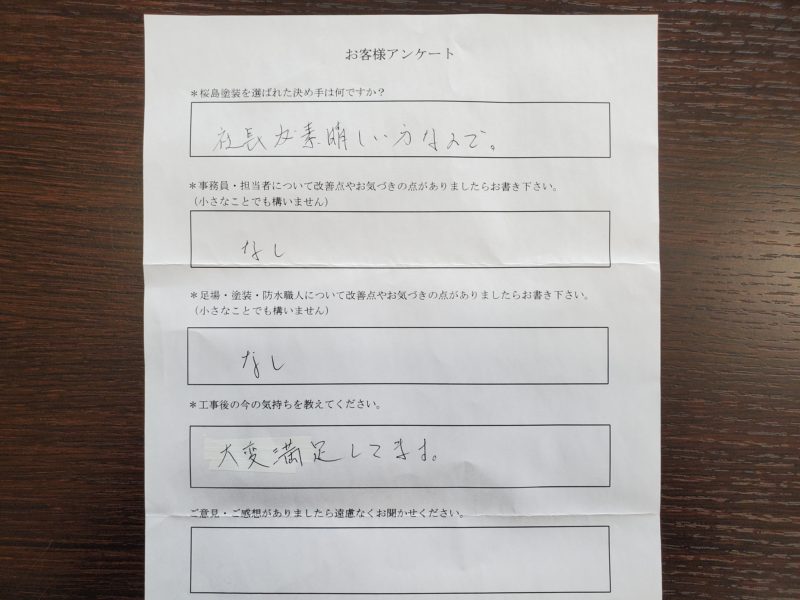 お客様アンケート
＊桜島塗装を選ばれた決め手は何ですか？
社長が素晴しい方なので。
＊事務員・担当者について改善点やお気づきの点がありましたらお書き下さい。
（小さなことでも構いません）
なし
＊足場・塗装・防水職人について改善点やお気づきの点がありましたらお書き下さい。
（小さなことでも構いません）
なし
＊工事後の今の気持ちを教えてください。
大変満足してます。
ご意見・ご感想がありましたら遠慮なくお聞かせください。